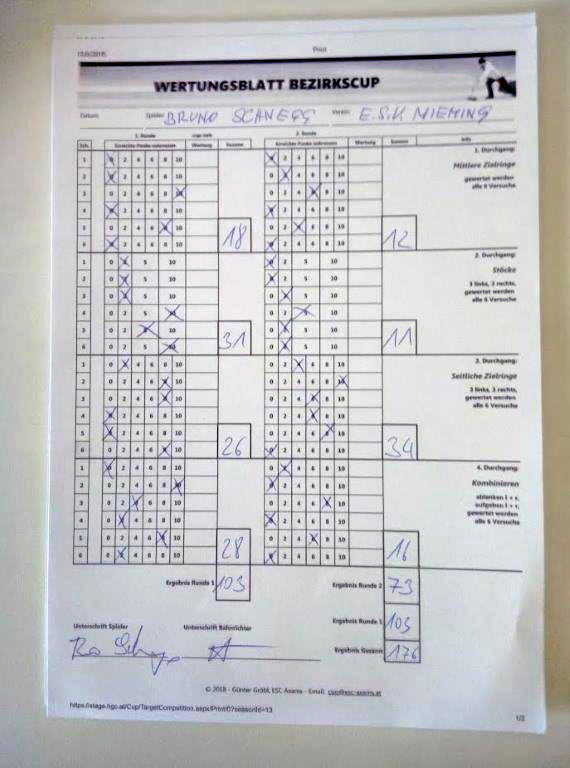 13.6.2018. Print
WERTUNGSBLATT BEZIRKSCUP
Datum: Spieler: BRUNO SCHNEGG Verein: E.S.V. MIEMING
1. Runde 2. Runde Info
Erreichte Punkte ankreuzen Wertung Summe Erreichte Punkte ankreuzen Wertung Summe
1 0 2 4 6 8 10 0 2 4 6 8 10 1. Durchgang:
2 0 2 4 6 8 10 0 2 4 6 8 10 Mittlere Zielringe
3 0 2 4 6 8 10 0 2 4 6 8 10 gewertet werden
4 0 2 4 6 8 10 0 2 4 6 8 10 alle 6 Versuche
5 0 2 4 6 8 10 18 0 2 4 6 8 10 12
6 0 2 4 6 8 10 0 2 4 6 8 10
1 0 2 5 10 0 2 5 10 2. Durchgang:
2 0 2 5 10 0 2 5 10 Stöcke
3 0 2 5 10 0 2 5 10 3 links, 3 rechts,
4 0 2 5 10 0 2 5 10 gewertet werden
alle 6 Versuche
5 0 2 5 10 31 0 2 5 10 11
6 0 2 5 10 0 2 5 10
1 0 2 4 6 8 10 0 2 4 6 8 10 3. Durchgang:
2 0 2 4 6 8 10 0 2 4 6 8 10 Seitliche Zielringe
3 0 2 4 6 8 10 0 2 4 6 8 10 3 links, 3 rechts,
gewertet werden
4 0 2 4 6 8 10 0 2 4 6 8 10 alle 6 Versuche
5 0 2 4 6 8 10 26 0 2 4 6 8 10 34
6 0 2 4 6 8 10 0 2 4 6 8 10
1 0 2 4 6 8 10 0 2 4 6 8 10 4. Durchgang:
2 0 2 4 6 8 10 0 2 4 6 8 10 Kombinieren
3 0 2 4 6 8 10 0 2 4 6 8 10 ablenken l + r,
aufgeben l + r,
4 0 2 4 6 8 10 0 2 4 6 8 10 gewertet werden
alle 6 Versuche
5 0 2 4 6 8 10 28 0 2 4 6 8 10 16
6 0 2 4 6 8 10 0 2 4 6 8 10
Ergebnis Runde 1 103 Ergebnis Runde 2 73
Ergebnis Runde 1 103
Unterschrift Spieler Unterschrift Bahnrichter
Ergebnis Gesamt 176
© 2018 - Günter Gröbl, ESC Axams - Email:
1/2